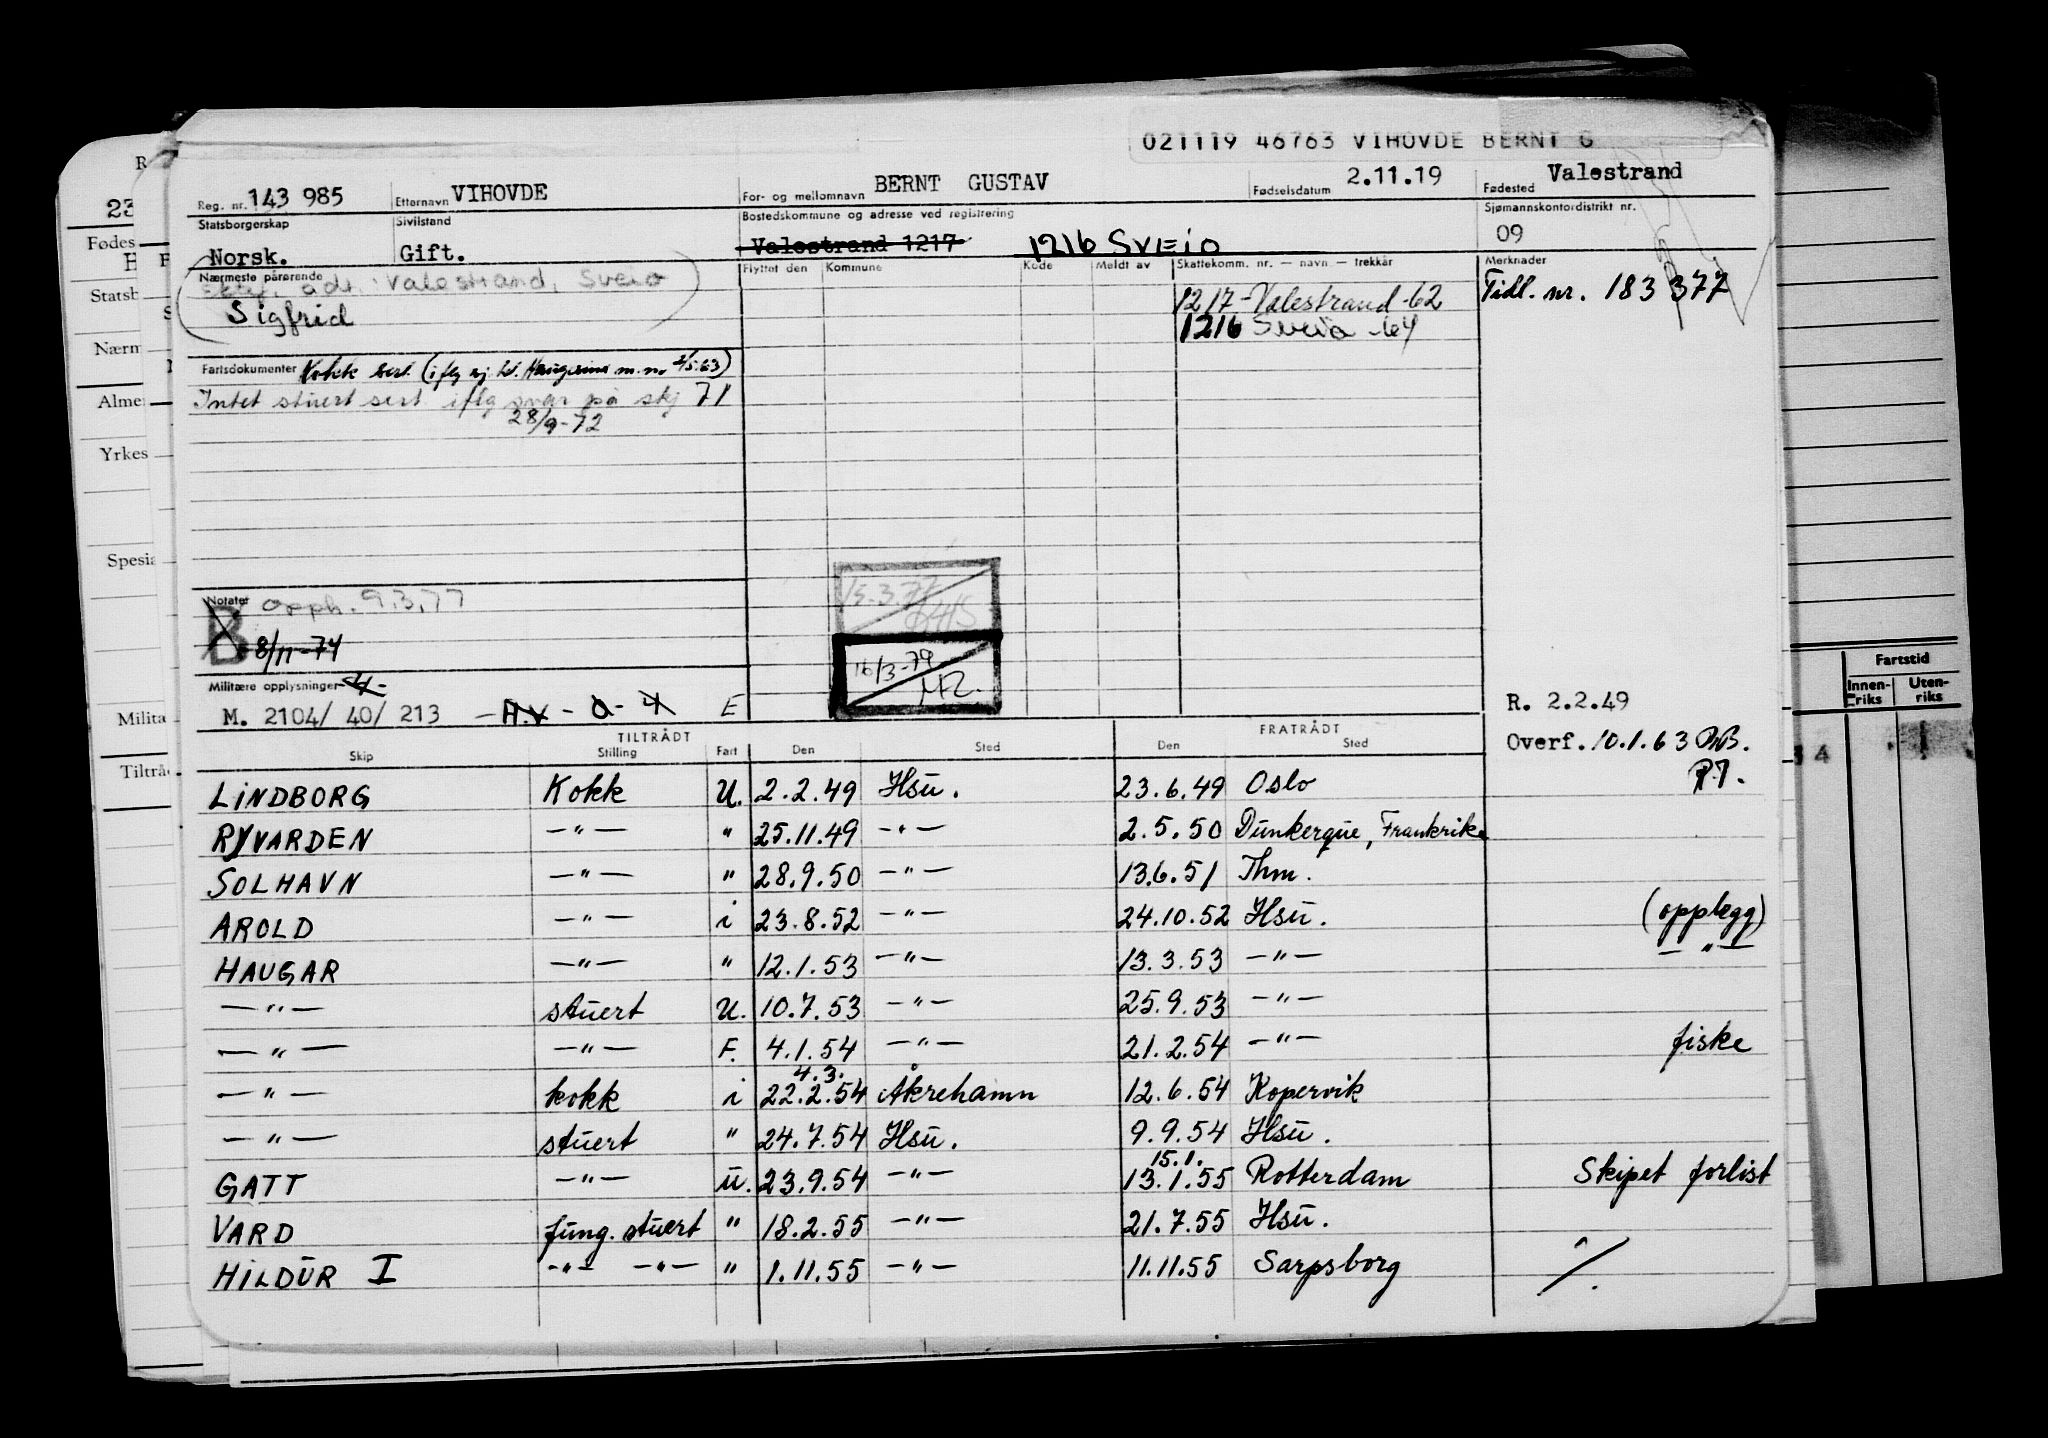 021119 46763 VIHOVDE BERNT G
Reg. nr. 143 985 Etternavn VIHOVDE For- og mellomnavn BERNT GUSTAV Fødselsdatum 2.11.19 Fødested Valestrand
Statsborgerskap Norsk. Sivilstand Gift. Bostedskommune og adresse ved registrering Valestrand 1217 1216 SVEIO Sjømannskontordistrikt nr. 09
Nærmeste pårørende Flyttet den Kommune Kode Meldt av Skattekomm. nr. — navn — trekkår Merknader
adr. Valestrand, Sveio
Sigfrid
1217 - Valestrand -62 Tidl. nr. 183 377
1216 Sveio -64
Fartsdokumenter Kokk sert. (iflg 2/5.63)
Intet stuert sert iflg svar på skj 71
28/9-72
Notater Opph. 9.3.77
B 8/11-74
15-3.77
16/3-79
Militære opplysninger
M. 2104/ 40/ 213 E
R. 2.2.49
Overf. 10.1.63
TILTRÅDT FRATRÅDT
Skip Stilling Fart Den Sted Den Sted
LINDBORG Kokk U. 2.2.49 Hsu. 23.6.49 Oslo
RYVARDEN —"— " 25.11.49 —"— 2.5.50 Dunkerque, Frankrike
SOLHAVN —"— " 28.9.50 —"— 13.6.51 Thm.
AROLD —"— i 23.8.52 —"— 24.10.52 Hsu. (opplegg)
HAUGAR —"— " 12.1.53 —"— 13.3.53 —"— —"—
—"— stuert U. 10.7.53 —"— 25.9.53 —"—
—"— —"— F. 4.1.54 —"— 21.2.54 —"— fiske
4.3.
—"— kokk i 22.2.54 Åkrehamn 12.6.54 Kopervik
—"— stuert " 24.7.54 Hsu. 9.9.54 Hsu.
15.1.
GATT —"— u. 23.9.54 —"— 13.1.55 Rotterdam Skipet forlist
VARD fung. stuert " 18.2.55 —"— 21.7.55 Hsu.
HILDUR I —"— —"— " 1.11.55 —"— 11.11.55 Sarpsborg
R
23
Fødes
H
Statsb
Nærm
Alme
Yrkes
Spesia
Milita
Tiltrå
Fartstid
Innen-
riks
Uten-
riks